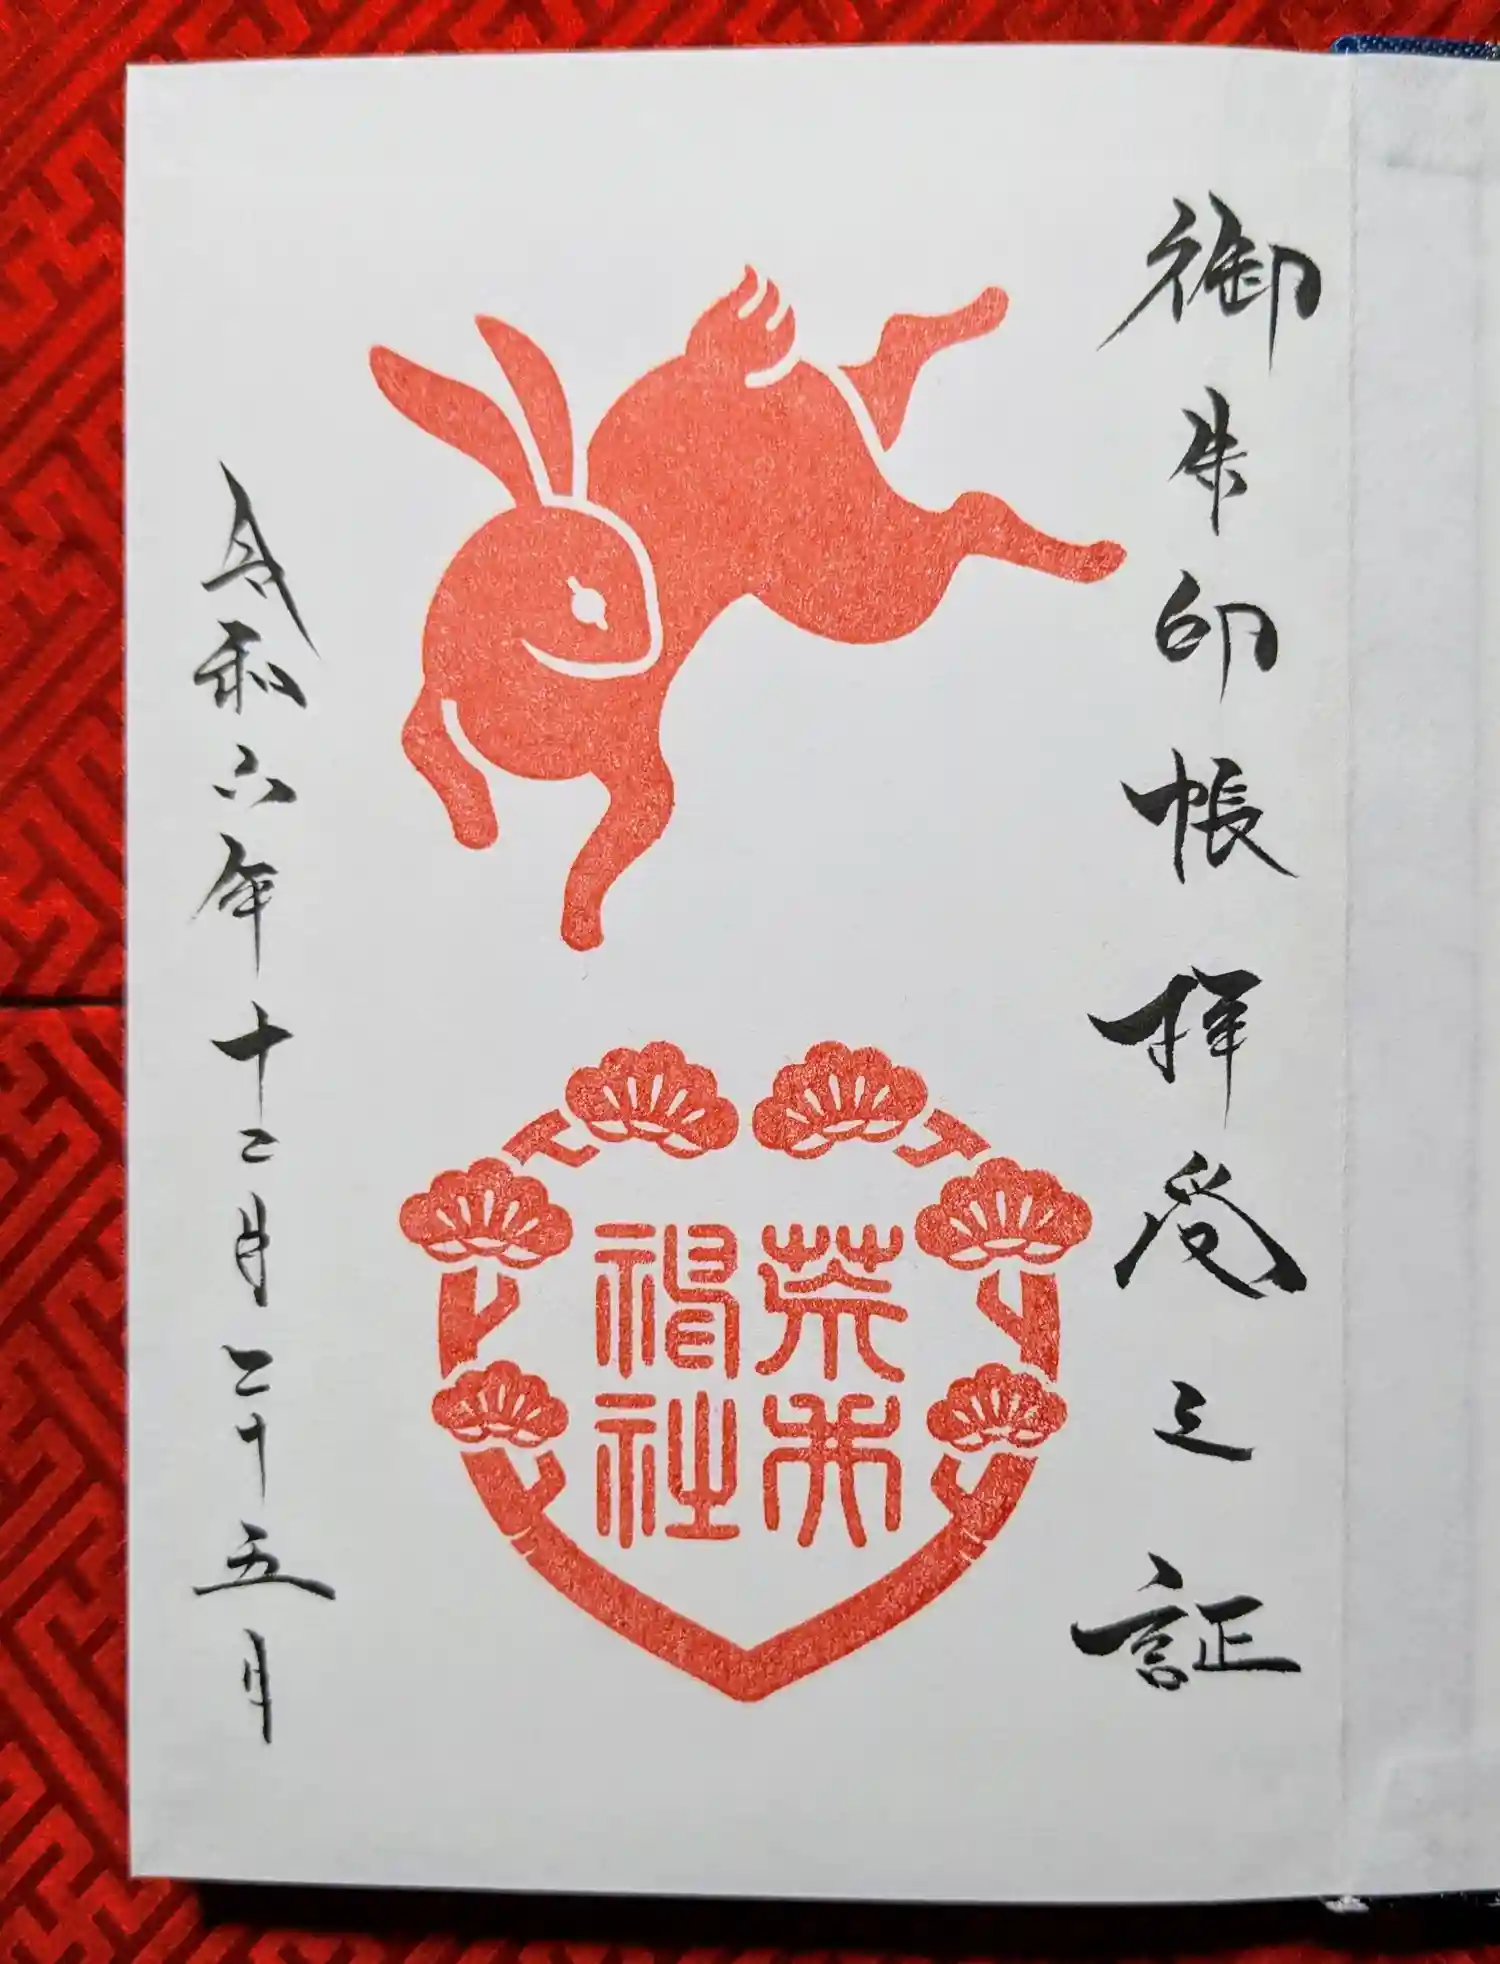 御朱印帳拝受之証
神社
令和六年十二月二十五日